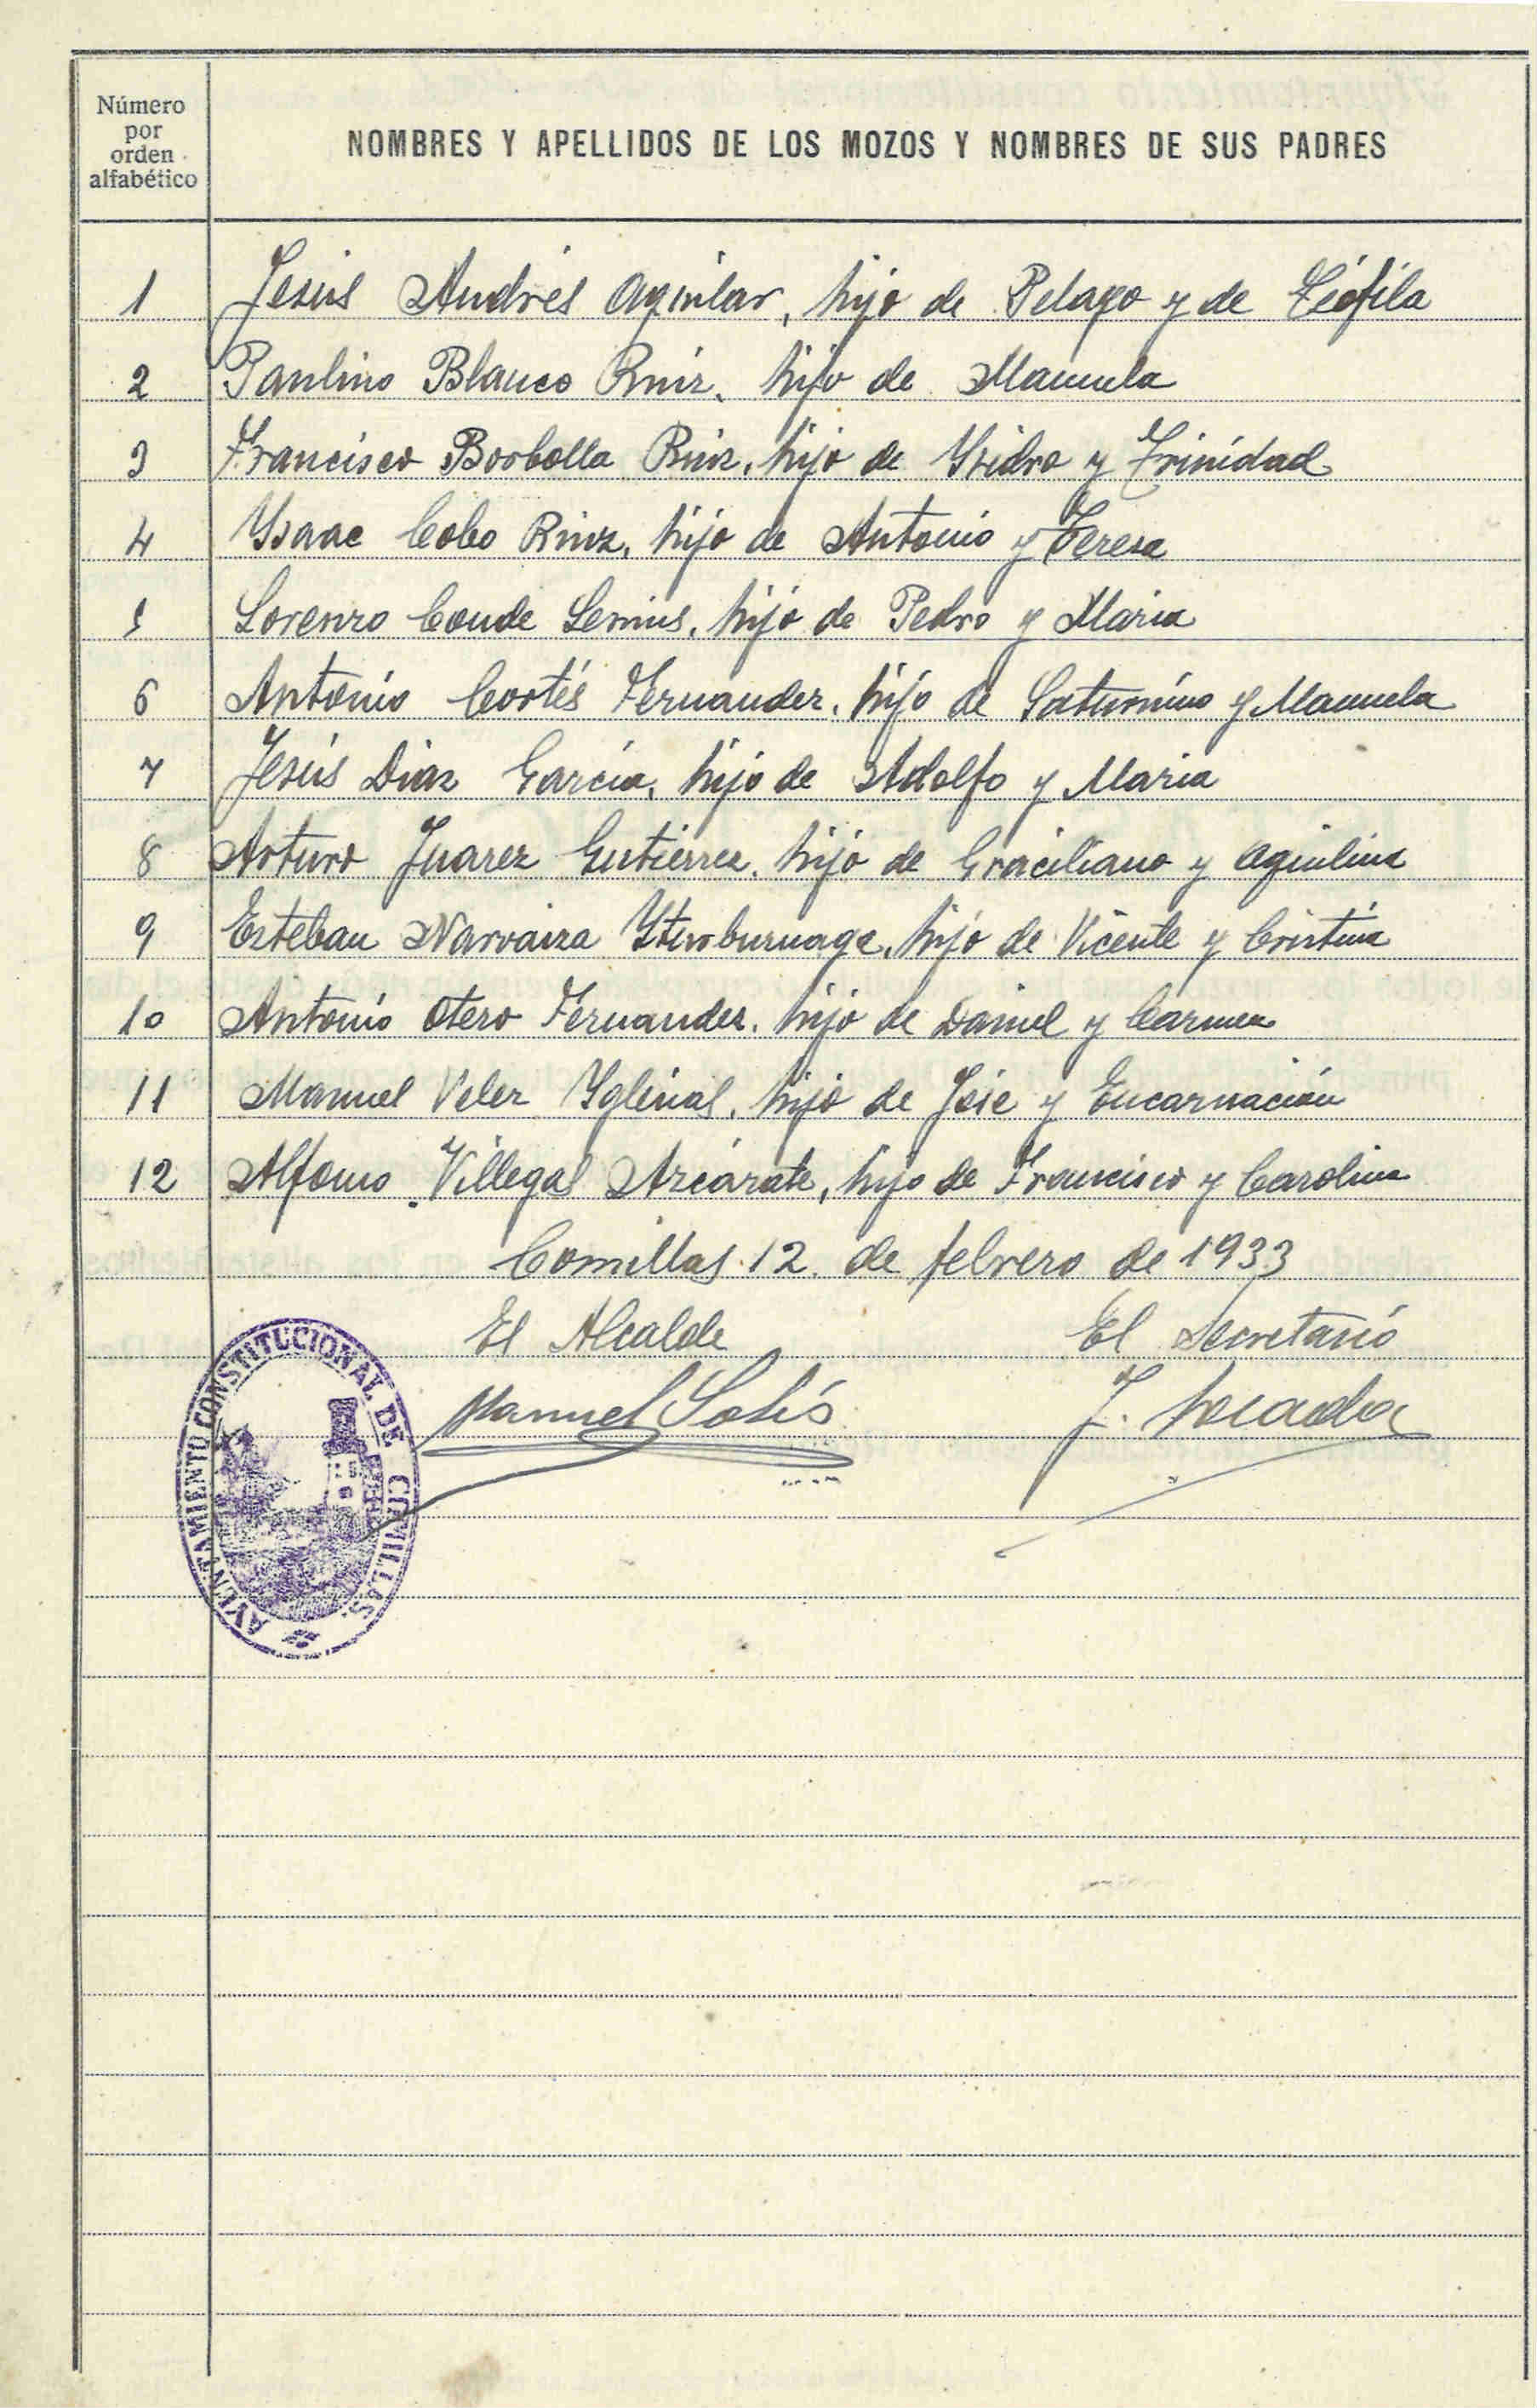 Número
por
orden
alfabético
NOMBRES Y APELLIDOS DE LOS MOZOS Y NOMBRES DE SUS PADRES
1 Jesús Andrés Aguilar, hijo de Pelayo y de Teófila
2 Paulino Blanco Ruiz, hijo de Manuela
3 Francisco Borbolla Ruiz, hijo de Ysidro y Trinidad
4 Ysaac Cobo Ruiz, hijo de Antonio y Teresa
5 Lorenzo Conde Lemus, hijo de Pedro y Maria
6 Antonio Cortés Fernandez, hijo de Saturnino y Manuela
7 Jesús Diaz García, hijo de Adolfo y Maria
8 Arturo Juarez Gutierrez, hijo de Graciliano y Aquilina
9 Esteban Narvaiza Yturburuaga, hijo de Vicente y Cristina
10 Antonio Otero Fernandez, hijo de Daniel y Carmen
11 Manuel Velez Yglesias, hijo de José y Encarnación
12 Alfonso Villegas Azcárate, hijo de Francisco y Carolina
Comillas 12 de febrero de 1933
El Alcalde El Secretario
Manuel Solís J.
AYUNTAMIENTO CONSTITUCIONAL DE COMILLAS